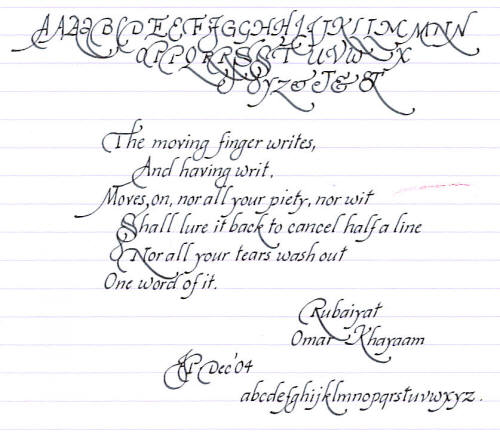 AAABBCDEEFFGGHHIJJKLLMMNN
OPPQRRSSTUVWX
YZ&
The moving finger writes,
And having writ,
Moves, on, nor all your piety, nor wit
Shall lure it back to cancel half a line
Nor all your tears wash out
One word of it.
Rubaiyat
Omar Khayaam
Dec'04
abcdefghijklmnopqrstuvwxyz.